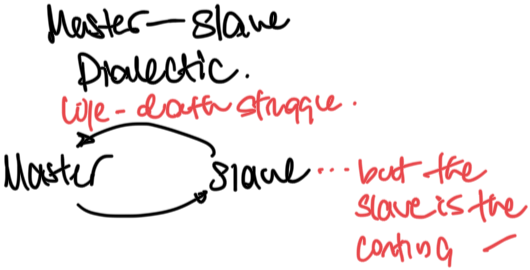 Master - Slave
Dialectic.
Life - death struggle.
Master Slave ... but the
slave is the